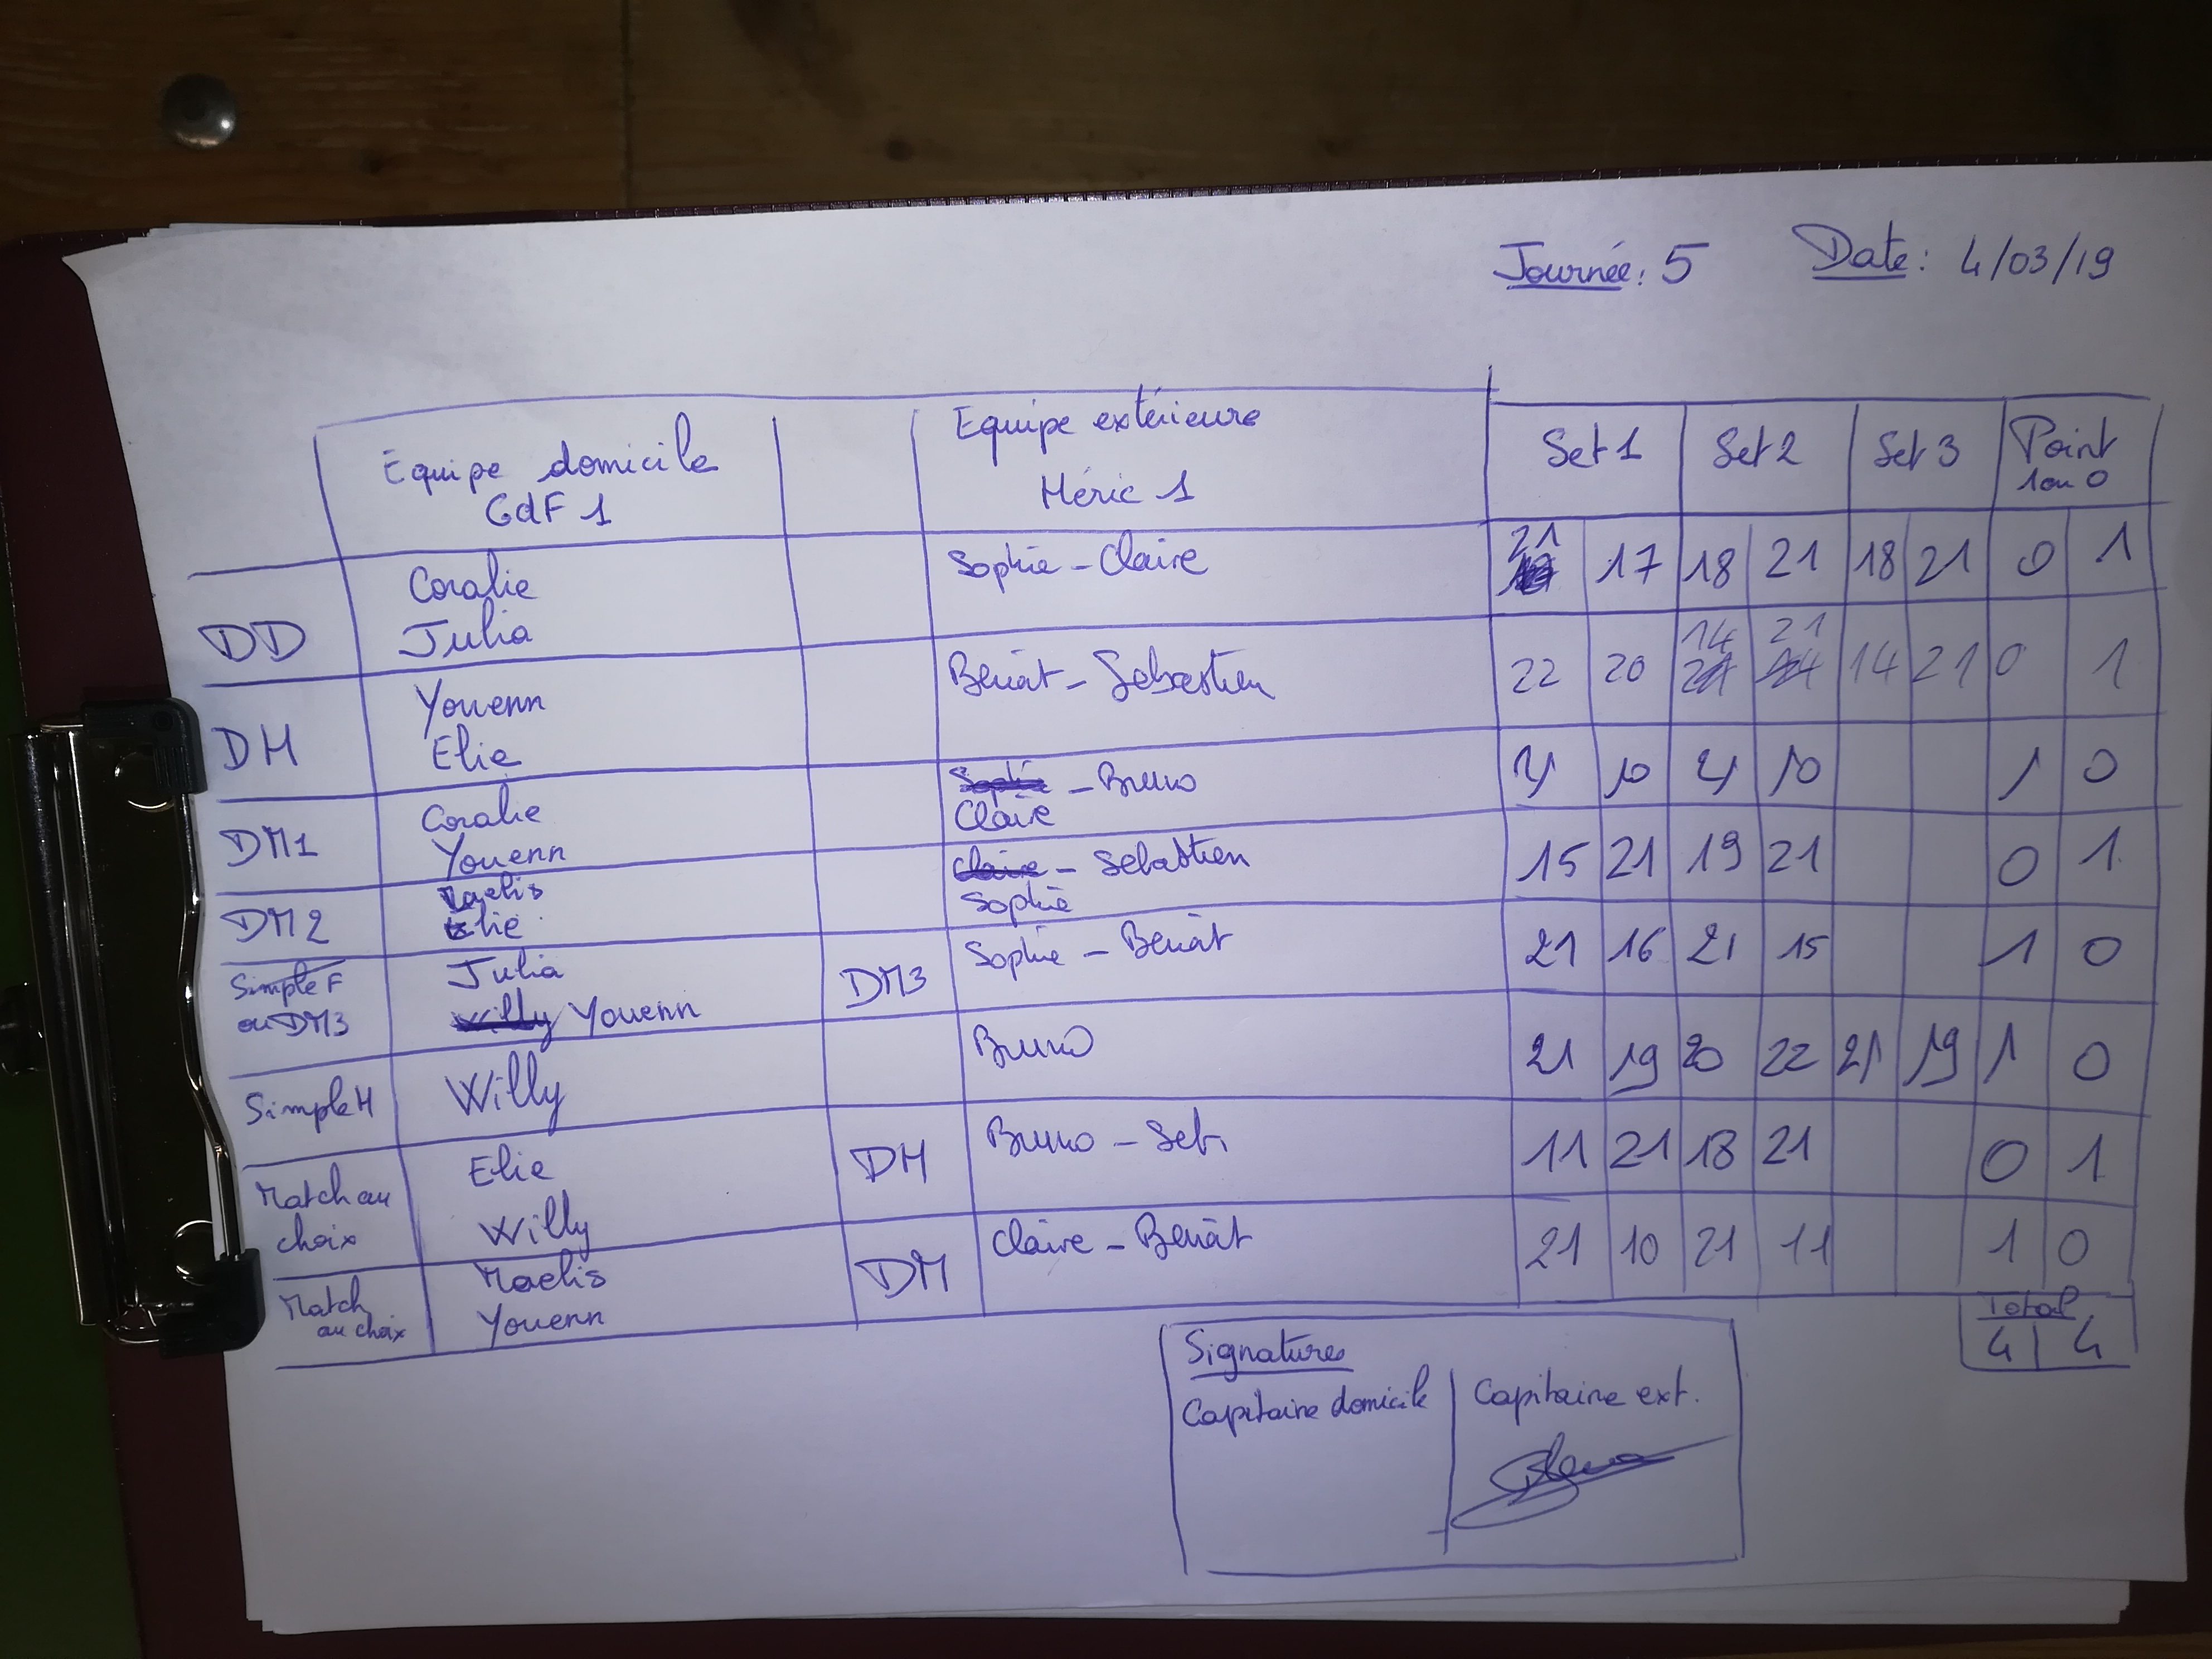 Journée: 5 Date: 4/03/19
Equipe domicile
GdF 1
Equipe extérieure
Héric 1
Set 1 Set 2 Set 3 Point
1 ou 0
DD Coralie
Julia
Sophie - Claire 21 17 18 21 18 21 0 1
DH Youenn
Elie
Benoît - Sébastien 22 20 14 21 14 21 0 1
DM1 Coralie
Youenn
Sophie - Bruno
Claire
21 10 21 10 1 0
DM2 Maelis
Elie
Claire - Sébastien
Sophie
15 21 19 21 0 1
Simple F
ou DM3
Julia
Willy Youenn
DM3 Sophie - Benoît 21 16 21 15 1 0
Simple H Willy Bruno 21 19 20 22 21 19 1 0
Match au
choix
Elie
Willy
DH Bruno - Seb. 11 21 18 21 0 1
Match
au choix
Maelis
Youenn
DM Claire - Benoît 21 10 21 11 1 0
Total
4 4
Signatures
Capitaine domicile Capitaine ext.